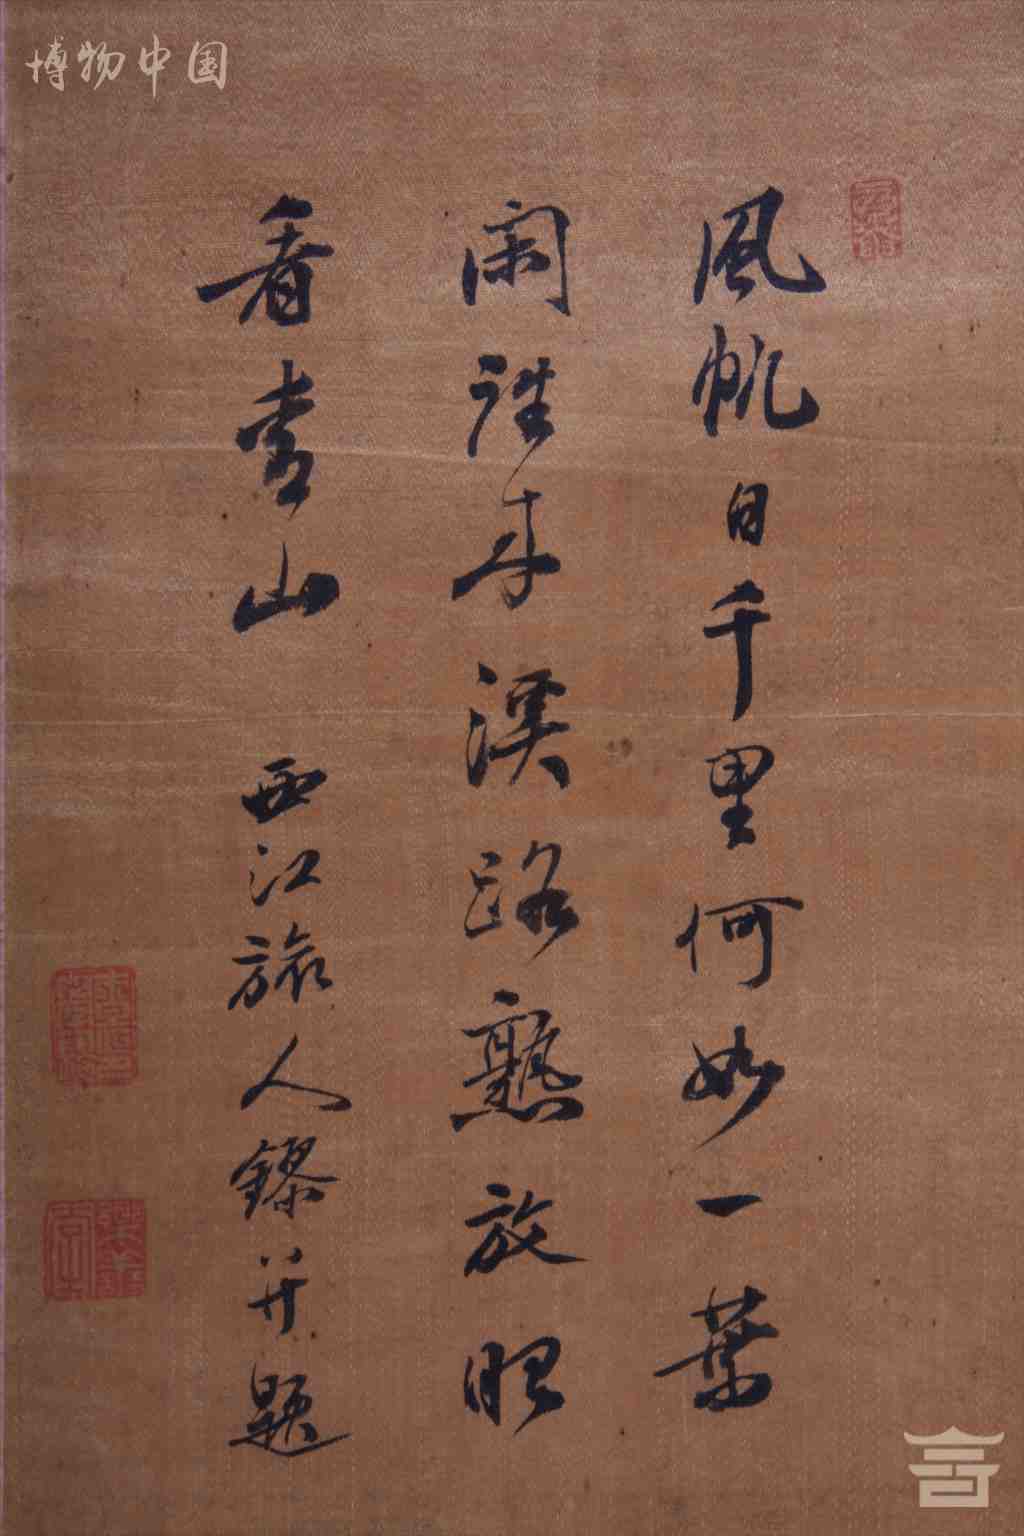 博物中国
風帆日千里何如一葉
閑往来溪路熟放眼
看青山 西江旅人鏐并題